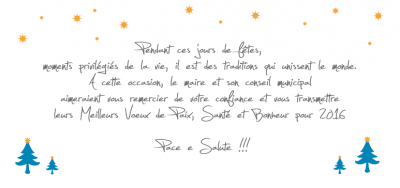 Pendant ces jours de fêtes,
moments privilégiés de la vie, il est des traditions qui unissent le monde.
A cette occasion, le maire et son conseil municipal
aimeraient vous remercier de votre confiance et vous transmettre
leurs Meilleurs Voeux de Paix, Santé et Bonheur pour 2016
Pace e Salute !!!